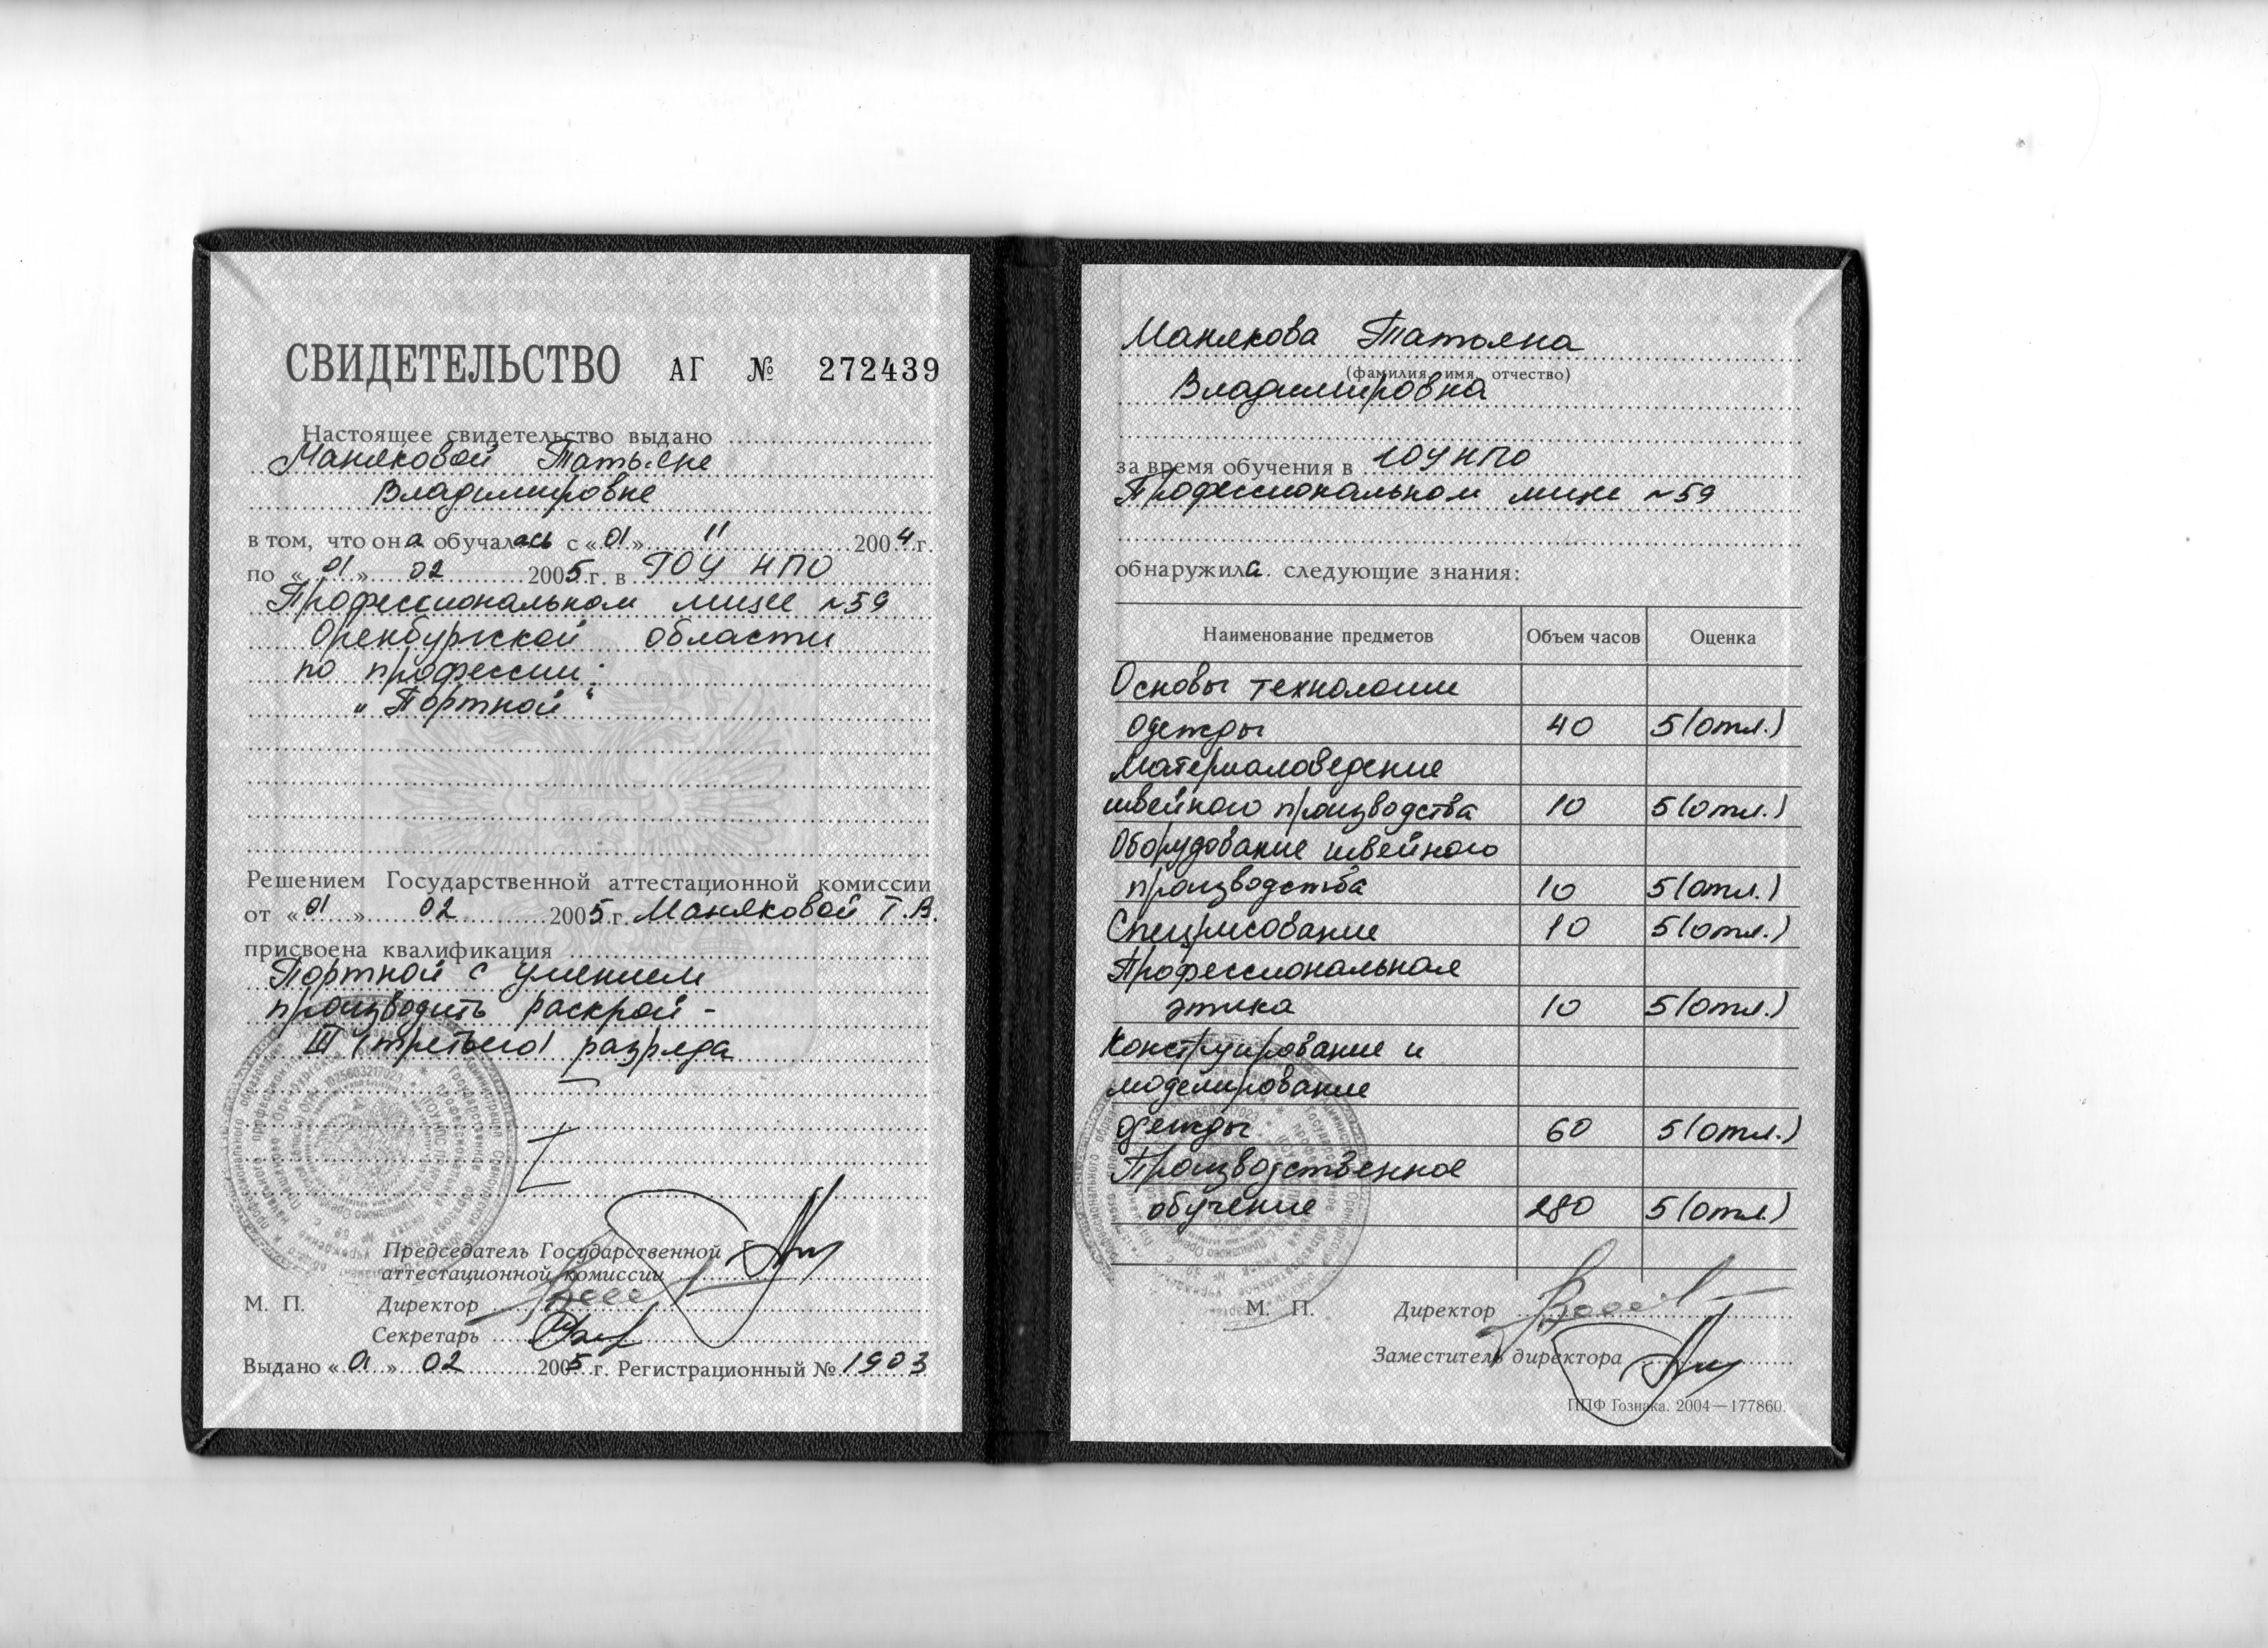 СВИДЕТЕЛЬСТВО АГ № 272439
Настоящее свидетельство выдано
Маняковой Татьяне
Владимировне
в том, что она обучалась с «01» 11 2004 г.
по «01» 02 2005 г. в ГОУ НПО
Профессиональном лицее №59
Оренбургской области
по профессии:
"Портной"
Решением Государственной аттестационной комиссии
от «01» 02 2005 г. Маняковой Т.В.
присвоена квалификация
Портной с умением
производить раскрой -
III (третьего) разряда
Председатель Государственной
аттестационной комиссии
М. П. Директор
Секретарь
Выдано «01» 02 2005 г. Регистрационный № 1903
Манякова Татьяна
(фамилия, имя, отчество)
Владимировна
за время обучения в ГОУ НПО
Профессиональном лицее №59
обнаружила следующие знания:
Наименование предметов Объем часов Оценка
Основы технологии
одежды 40 5 (отл.)
Материаловедение
швейного производства 10 5 (отл.)
Оборудование швейного
производства 10 5 (отл.)
Спецрисование 10 5 (отл.)
Профессиональная
этика 10 5 (отл.)
Конструирование и
моделирование
одежды 60 5 (отл.)
Производственное
обучение 280 5 (отл.)
М. П. Директор
Заместитель директора
ППФ Гознака. 2004—177860.